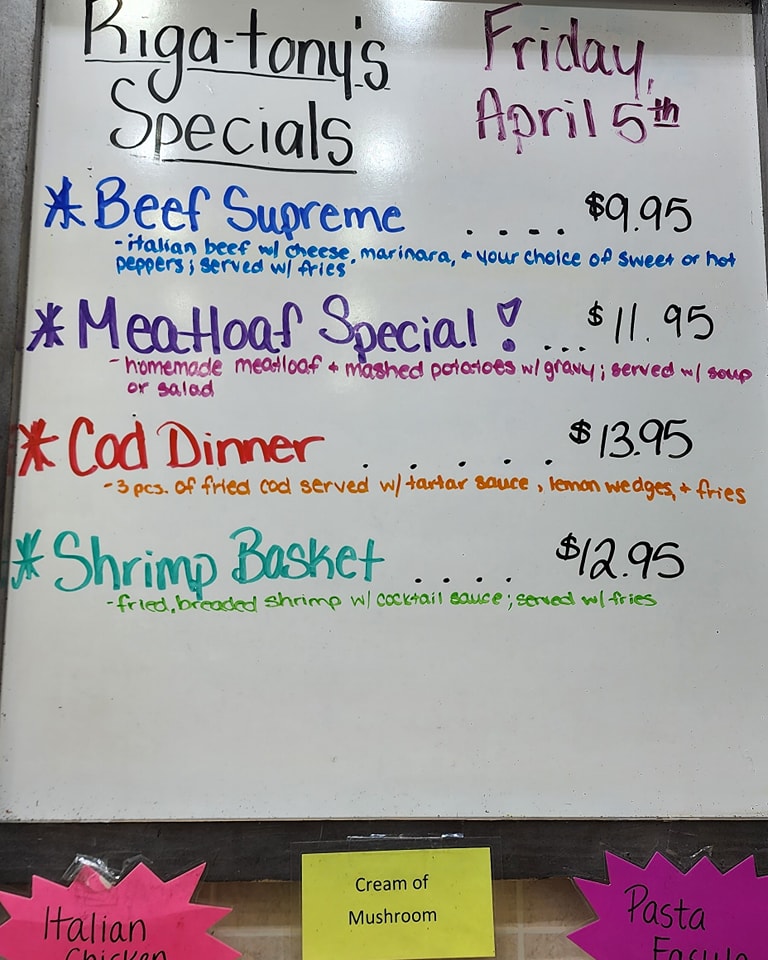 Riga-tony's
Specials
Friday,
April 5th
* Beef Supreme .... $9.95
-italian beef w/ cheese, marinara, + your choice of sweet or hot
peppers; served w/ fries
* Meatloaf Special! ... $11.95
-homemade meatloaf + mashed potatoes w/ gravy; served w/ soup
or salad
* Cod Dinner ...... $13.95
-3 pcs. of fried cod served w/ tartar sauce, lemon wedges, + fries
* Shrimp Basket .... $12.95
-fried, breaded shrimp w/ cocktail sauce; served w/ fries
Italian
Chicken
Cream of
Mushroom
Pasta